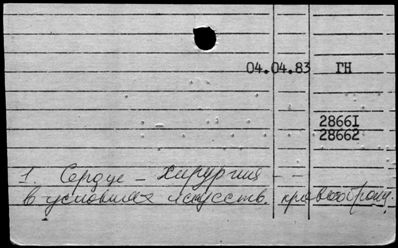 04.04.83 ГН
28661
28662
1. Сердце – хирургия
в условиях искусств. кровообращ.